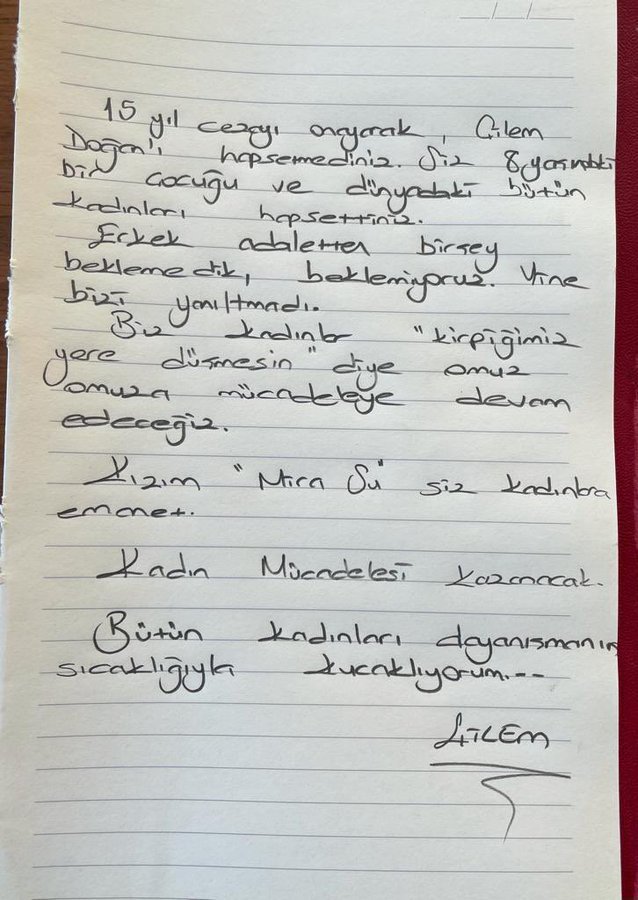 / /
15 yıl cezayı onayarak, Çilem
Doğan'ı hapsemediniz. Siz 8 yaşındaki
bir çocuğu ve dünyadaki bütün
kadınları hapsettiniz.
Erkek adaletten birşey
beklemedik, beklemiyoruz. Yine
bizi yanıltmadı.
Biz kadınlar "kirpiğimiz
yere düşmesin" diye omuz
omuza mücadeleye devam
edeceğiz.
Kızım "Mira Su" siz kadınlara
emanet.
Kadın Mücadelesi kazanacak.
Bütün kadınları dayanışmanın
sıcaklığıyla kucaklıyorum...
ÇİLEM